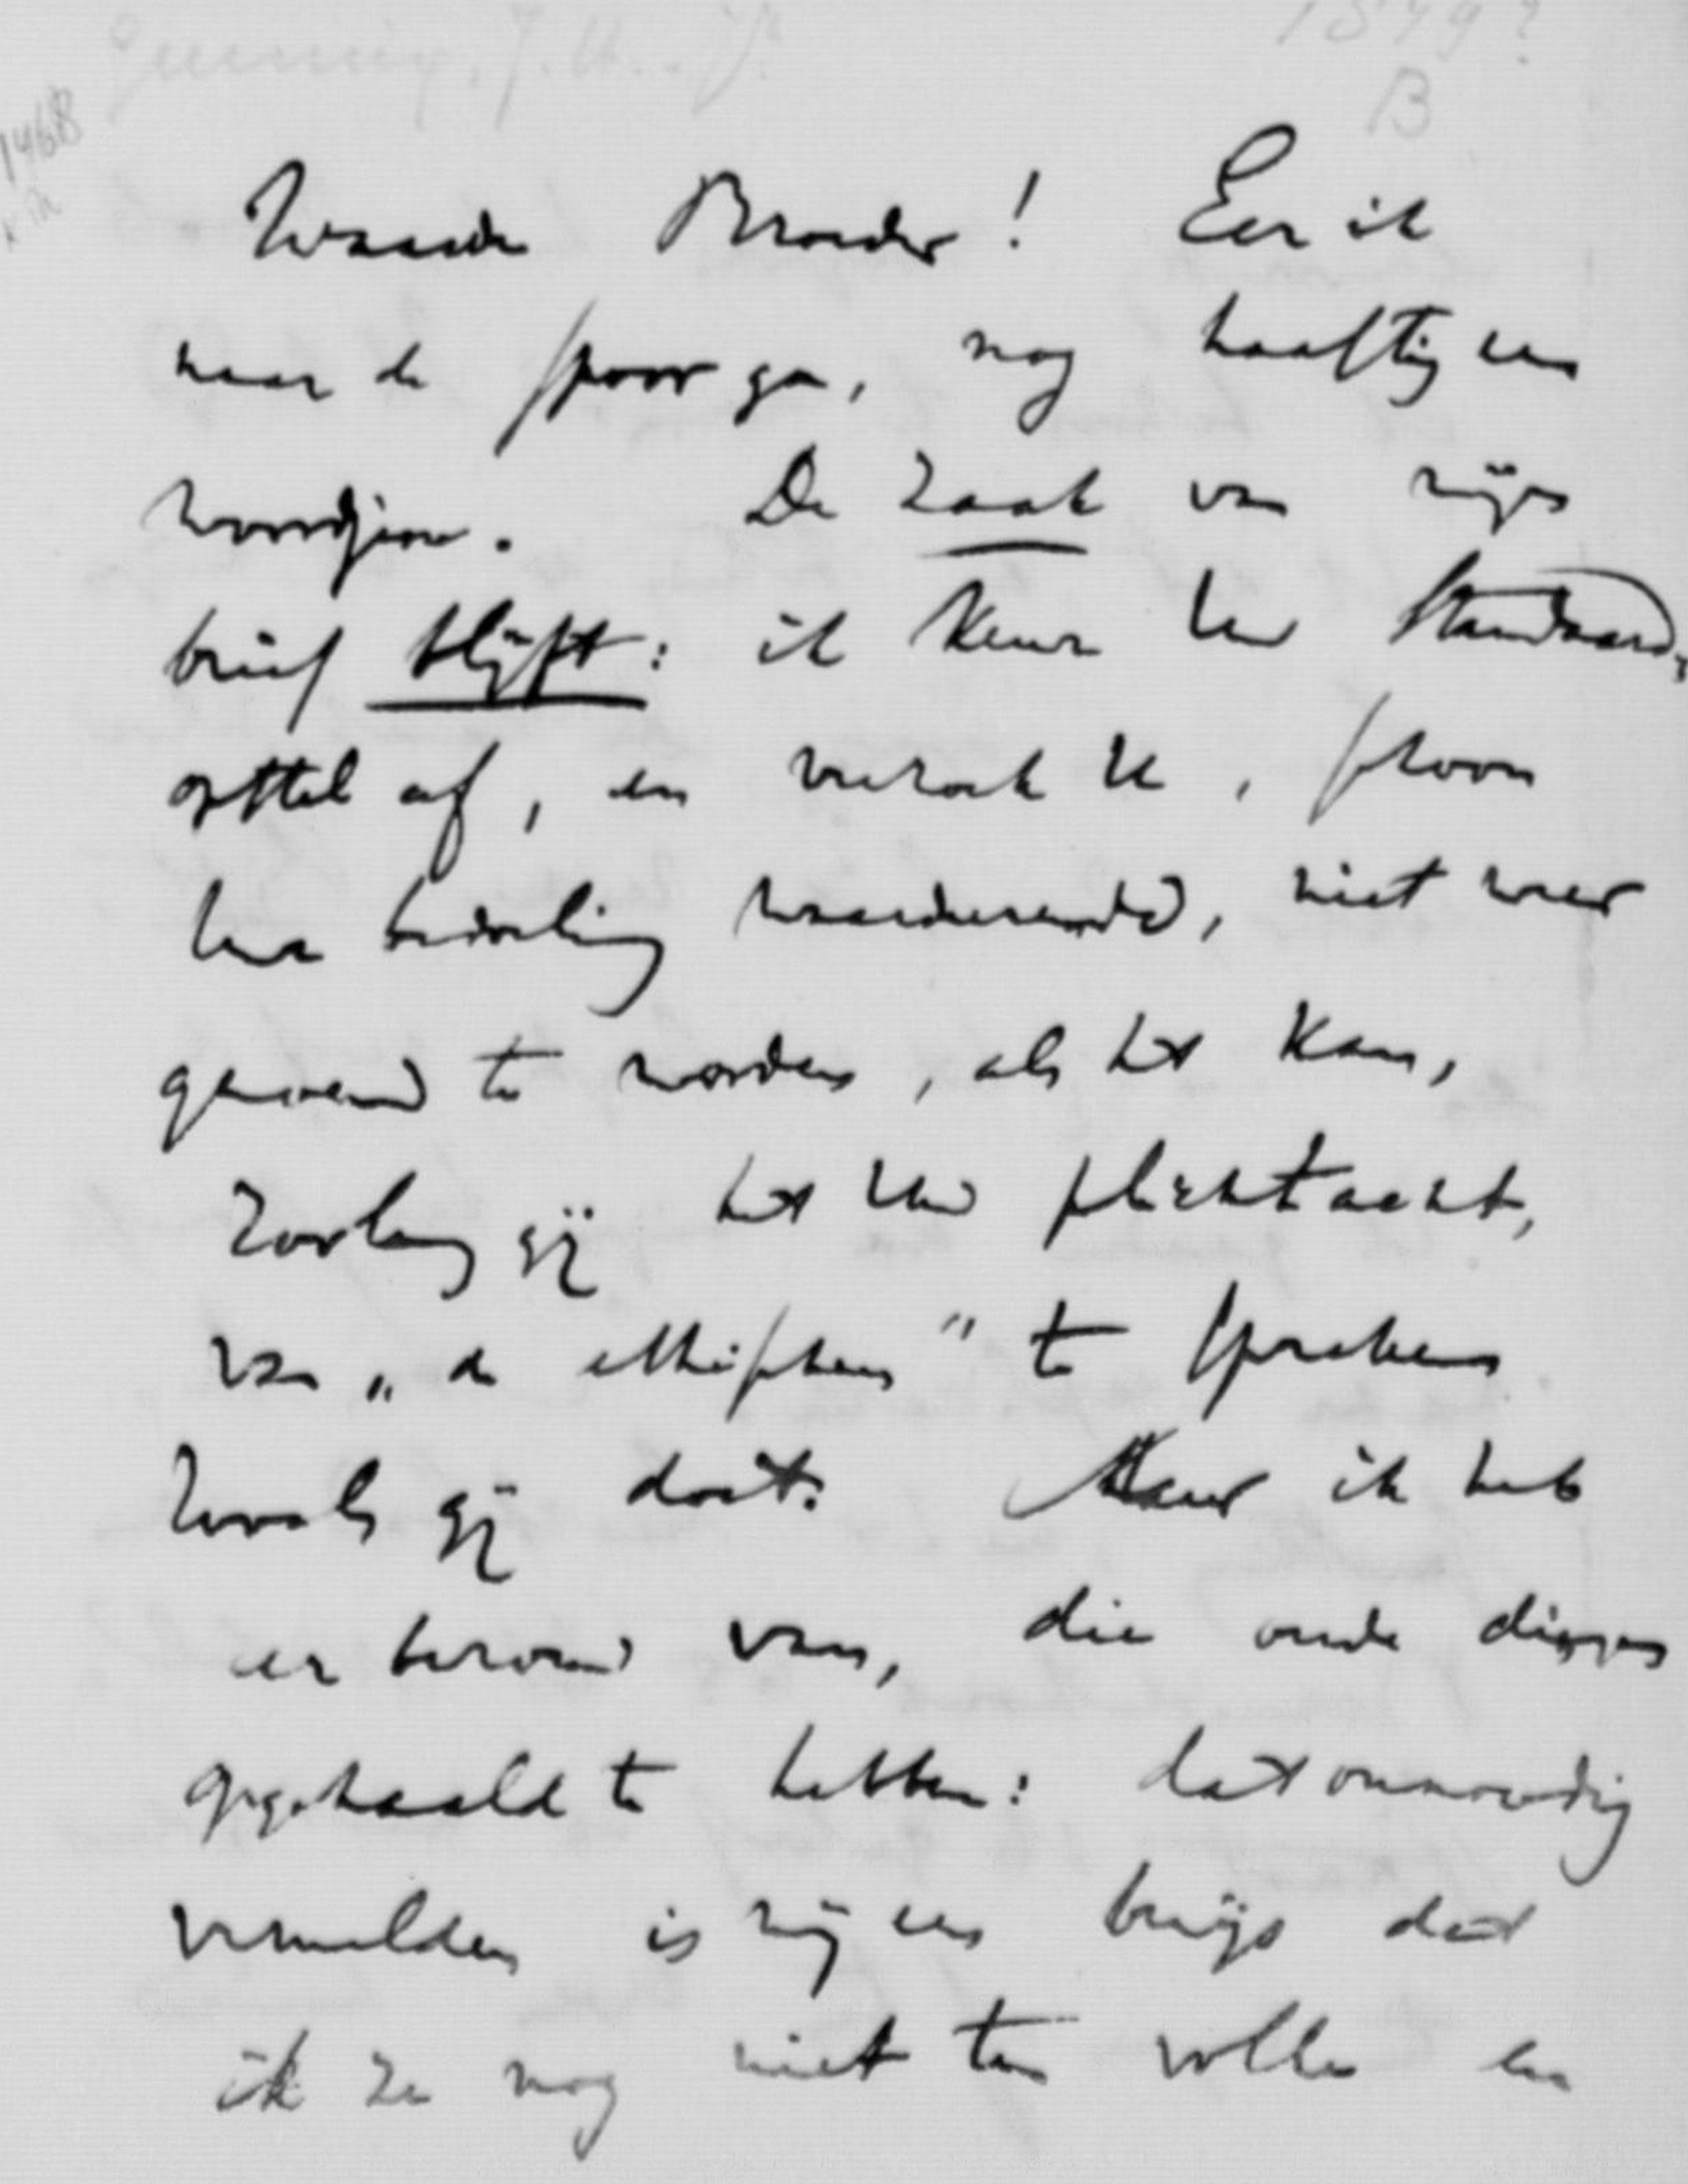 Gunning, J.H. Jr.
1879?
B
1468
Waarde Broeder! Eer ik
naar de spoor ga, nog haastig een
woordjen. De zaak van mijn
brief blijft: ik keur Uw Standaard,
opstel af, en verzoek U, schoon
Uw bedoeling waardeerend, niet meer
genoemd te worden, als het kan,
zoolang gij het Uw plicht acht,
van „de ethischen" te spreken
zooals gij doet. Maar ik heb
er berouw van, die oude dingen
opgehaald te hebben: dat onnoodig
vermelden is mij een bewijs dat
ik ze nog niet ten volle en